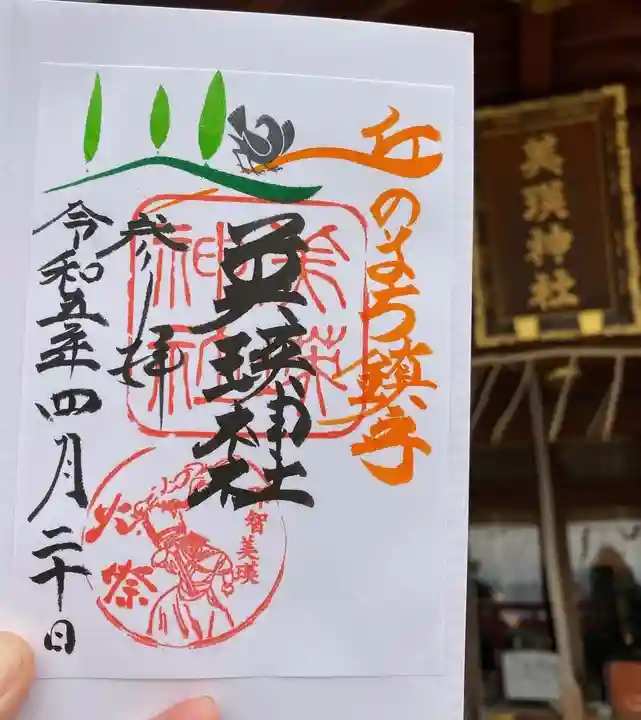 丘のまち鎮守
美瑛神社
参拝
令和五年四月二十日
美瑛神社
那智美瑛
火祭
美瑛神社